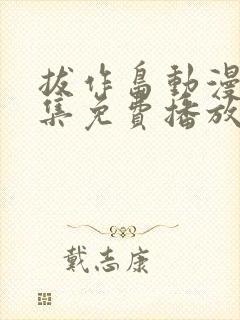 拔作岛動漫
集免費播放
戴志康